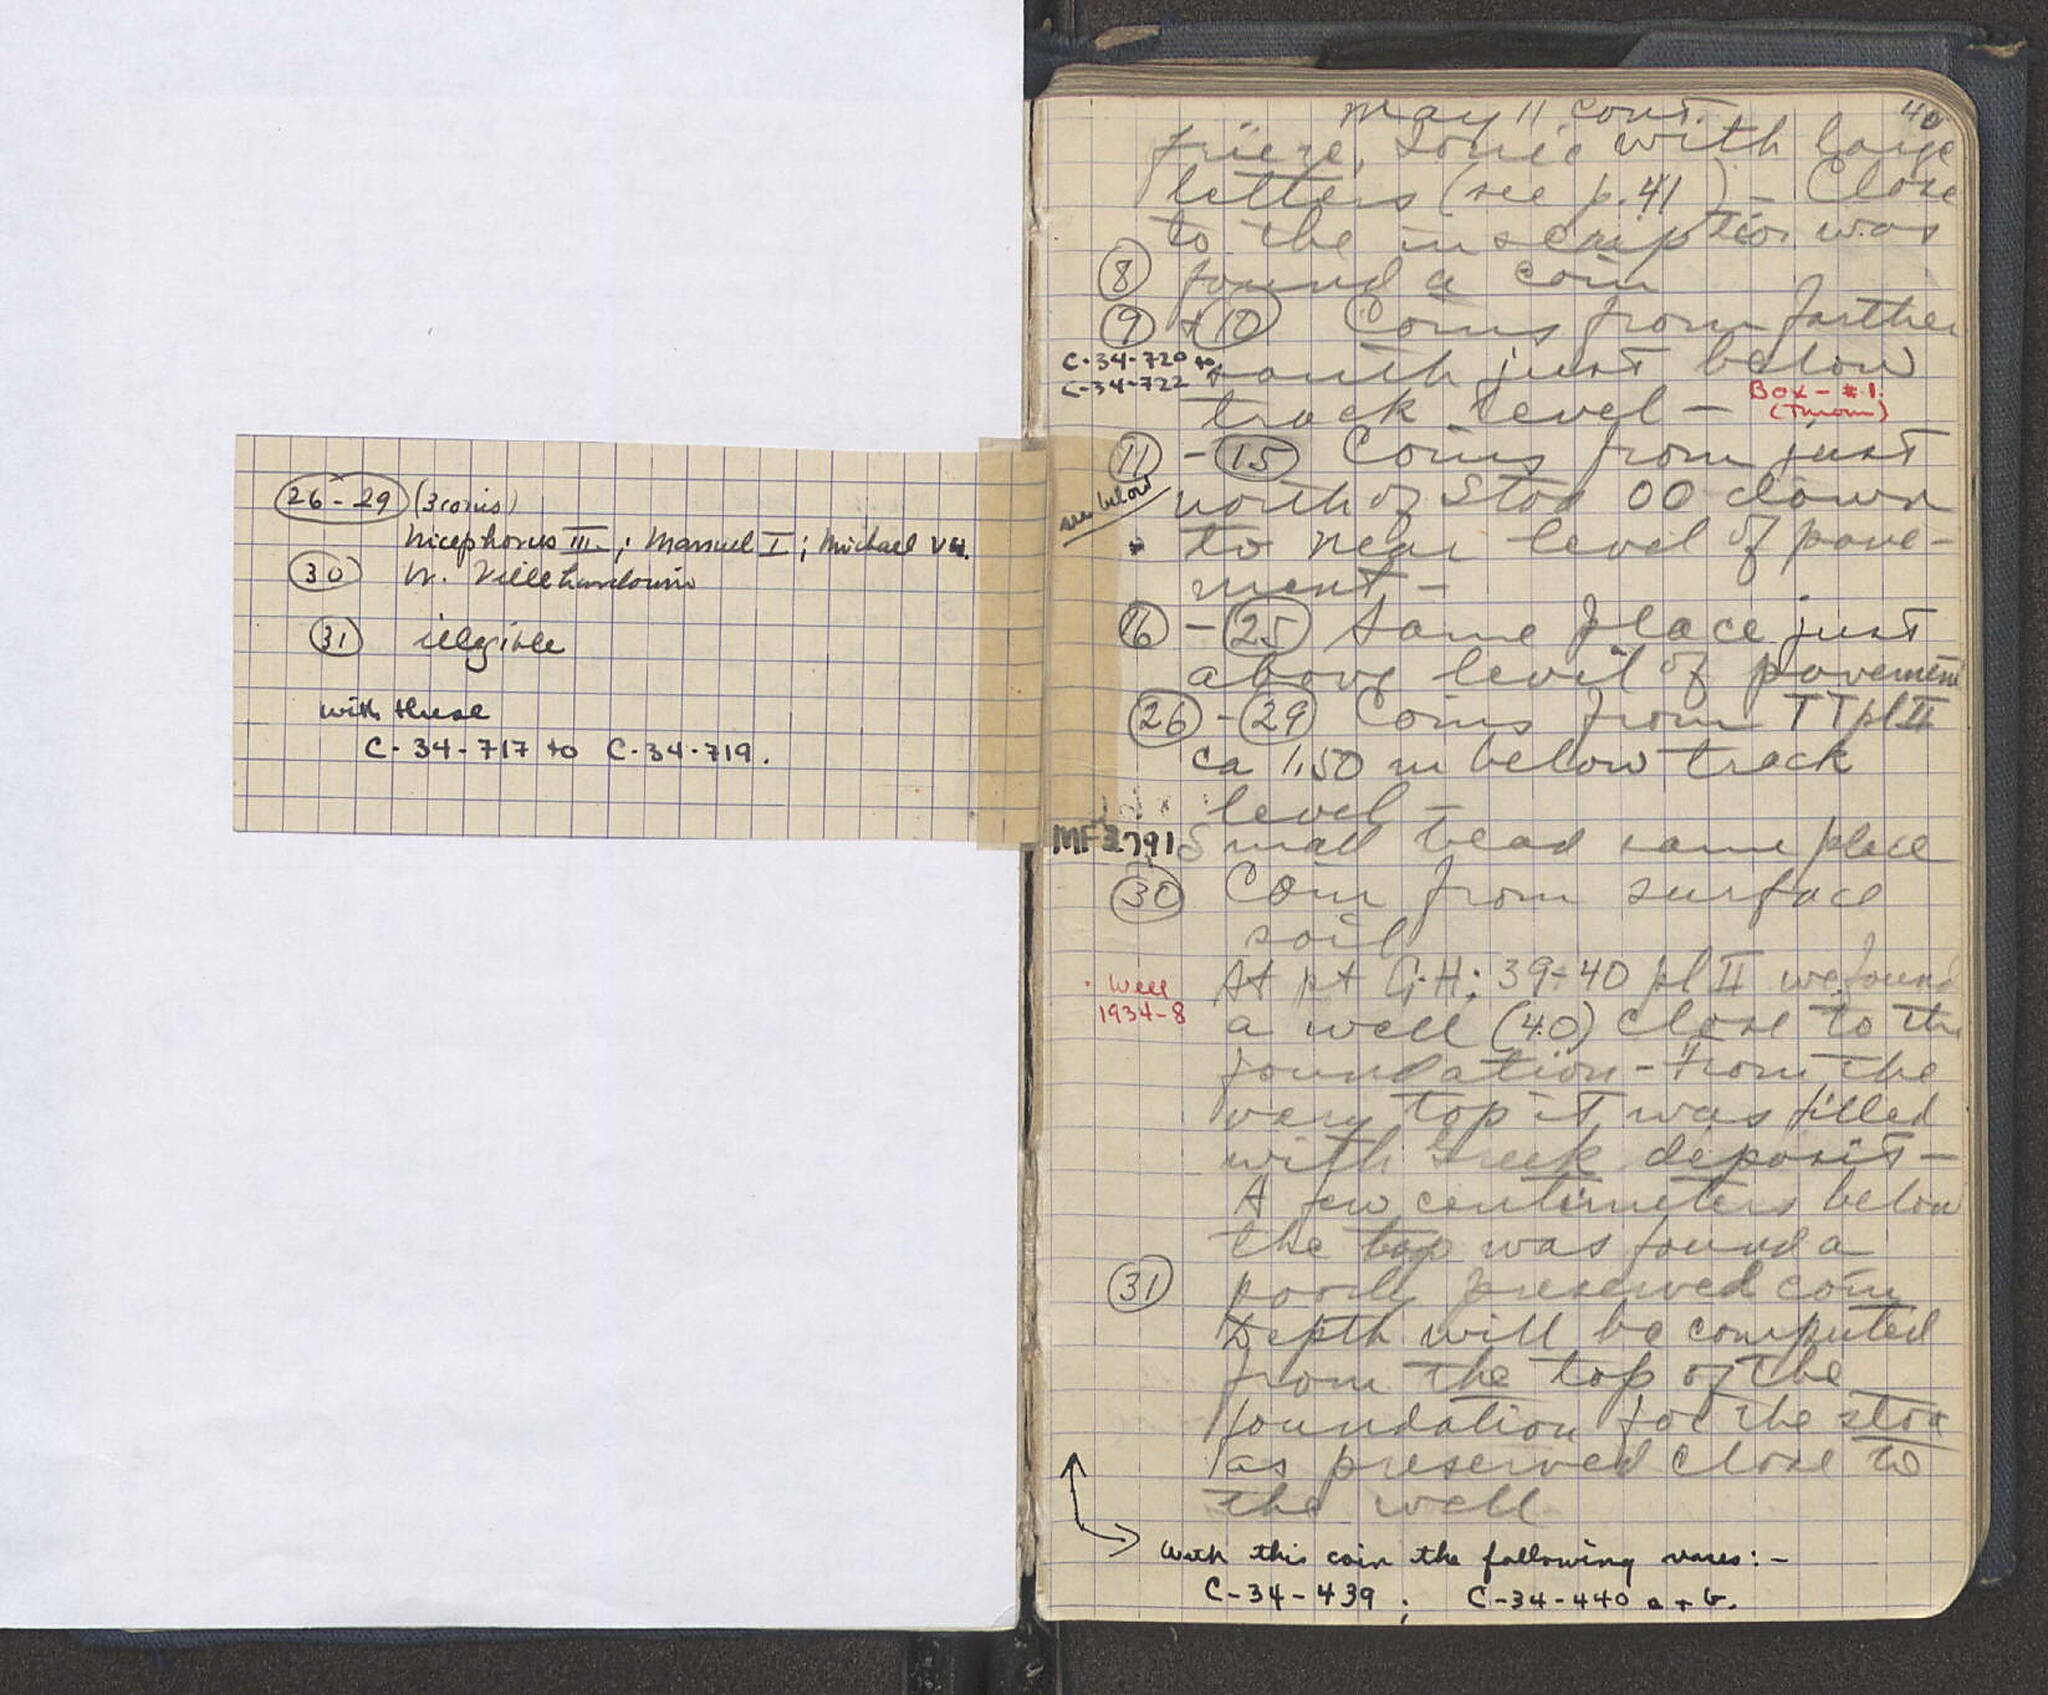 26-29 (3 coins)
Nicephorus III; Manuel I; Michael VII.
30 W. Villehardouin
31 illegible
with these
C-34-717 to C-34-719.
May 11 cont. 40
frieze, Ionic with large
letters (see p. 41) - Close
to the inscription was
8 found a coin
9 + 10 Coins from farther
C-34-720 to
C-34-722
south just below
track level -
Box - #1.
(Thrown)
11 - 15 Coins from just
see below
north of Stoa OO down
to near level of pave-
ment -
16 - 25 Same place just
above level of pavement
26 - 29 Coins from TT pl II
ca 1.50 m below track
level -
MF 2791 Small bead same place
30 Coin from surface
soil
Well
1934-8
At pt G-H: 39-40 pl II we found
a well (40) close to the
foundation - From the
very top it was filled
with Greek deposit -
A few centimeters below
the top was found a
31 poorly preserved coin
Depth will be computed
from the top of the
foundation for the stoa
as preserved close to
the well
With this coin the following vases: -
C-34-439; C-34-440 a + b.